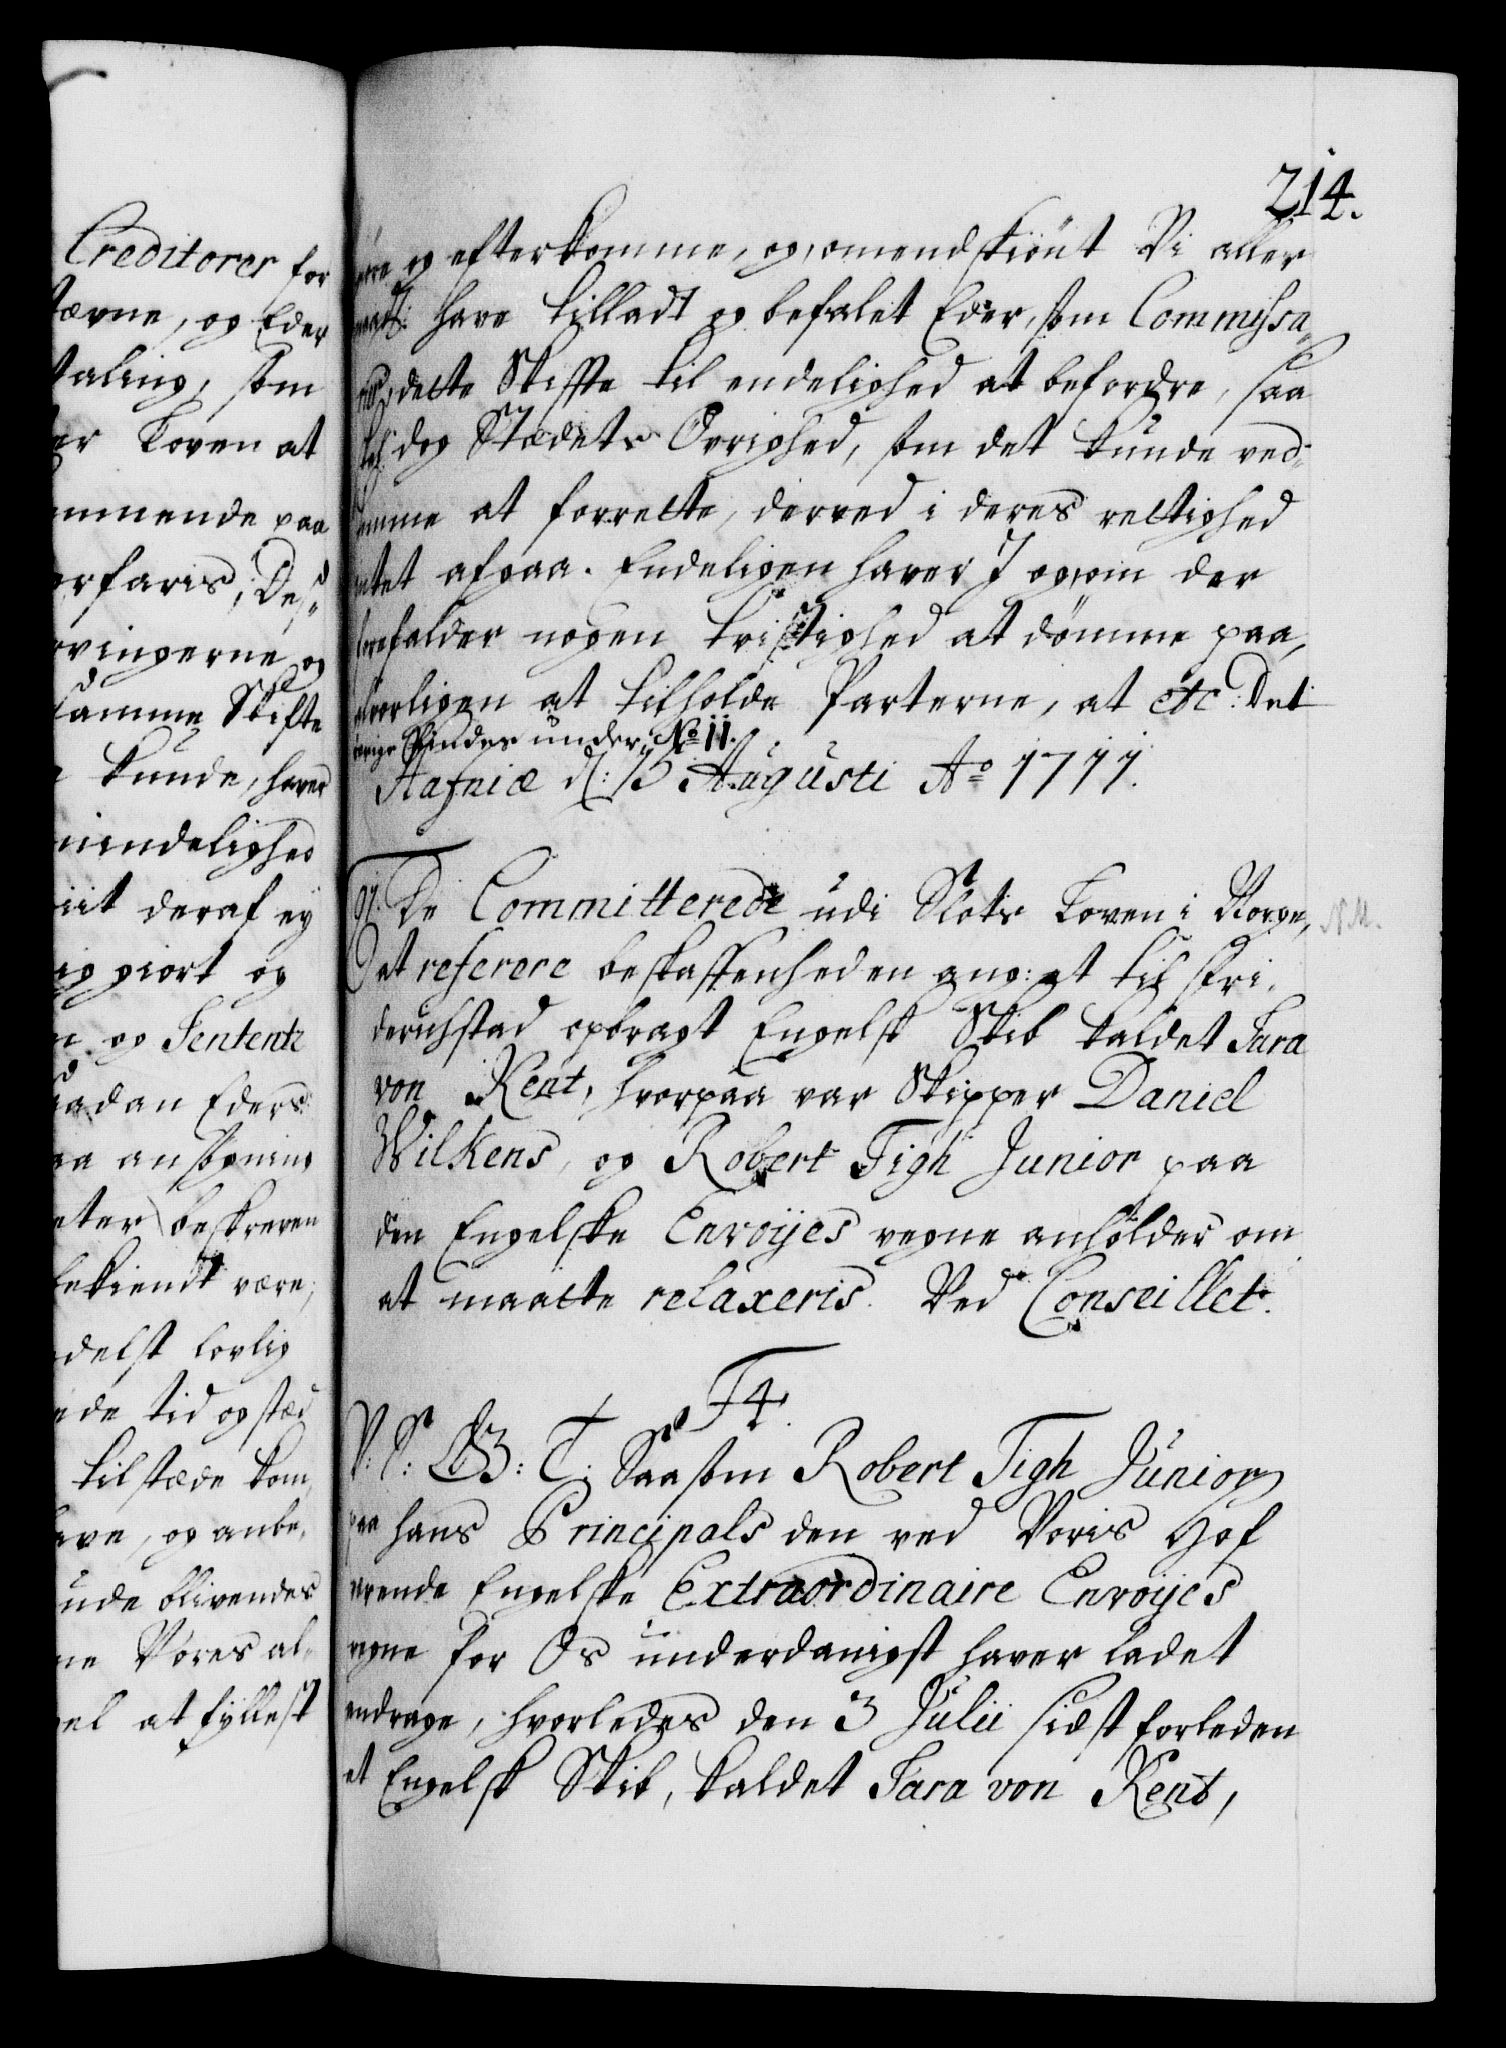 214.
Creditorer for
og Eder
taling, som
er Loven at
paa
erfaris, Des-
rvingerne og
samme Skifte
kunde, haver
mindelighed
deraf ey
giort og
og Sententz
aadan Eders
paa ansøgning
beskreven
bekiendt være,
delst lovlig
tid og stæd
tilstæde kom-
have, og anbe-
blivendes
Vores al-
at fyllest
og efterkomme, og, omendskiönt Vi aller
naadt: have tilladt og befalet Eder, som Commissa-
dette Skiffte til endelighed at befordre, saa
dog Stædets Øvrighed, som det kunde ved-
komme at forrette, derved i deres rettighed
intet afgaa. Endeligen haver I og, om der
forefalder nogen tvistighed at dömme paa,
alvorligen at tilholde Parterne, at etc: Det
øvrige findes under No 11.
Hafniæ d: 15 Augusti Ao 1711.
De Committerede udi Slots Loven i Norge,
N.M.
at referere beskaffenheden ang: et til Fri-
derichstad opbragt Engelsk Skib kaldet Sara
von Kent, hvorpaa var Skipper Daniel
Wilkens, og Robert Tigh Junior paa
den Engelske Envoÿes vegne anholder om
at maatte relaxeris. Ved Conseillet.
F4.
V: S: G B: T: Saasom Robert Tigh Junior
paa hans Principals den ved Voris Hof
værende Engelske Extraordinaire Envoÿes
vegne for Os underdanigst haver ladet
andrage, hvorledes den 3 Julii sidst forleden
et Engelsk Skib, kaldet Sara von Kent,